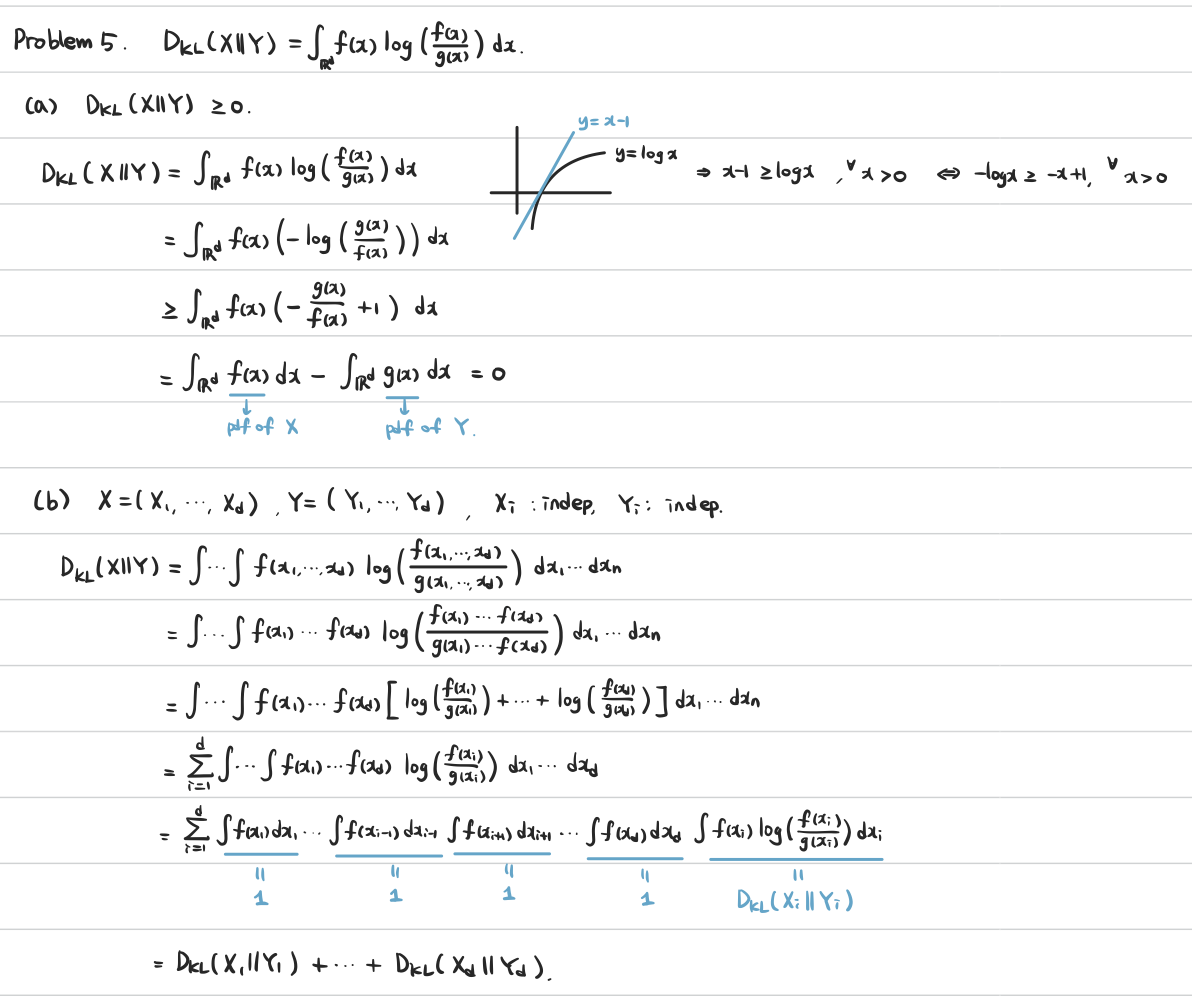 Problem 5. D_KL(X||Y) = ∫_ℝᵈ f(x) log (f(x)/g(x)) dx.
(a) D_KL(X||Y) ≥ 0.
y = x-1
D_KL(X||Y) = ∫_ℝᵈ f(x) log(f(x)/g(x)) dx y = log x ⇒ x-1 ≥ log x , ∀x>0 ⇔ -log x ≥ -x+1, ∀x>0
= ∫_ℝᵈ f(x) (- log (g(x)/f(x))) dx
≥ ∫_ℝᵈ f(x) (- g(x)/f(x) +1) dx
= ∫_ℝᵈ f(x) dx - ∫_ℝᵈ g(x) dx = 0
↓ ↓
pdf of X pdf of Y.
(b) X = (X₁, ⋯, X_d) , Y = (Y₁, ⋯, Y_d) , X_i : indep, Y_i : indep.
D_KL(X||Y) = ∫⋯∫ f(x₁,⋯,x_d) log(f(x₁,⋯,x_d)/g(x₁,⋯,x_d)) dx₁⋯dx_n
= ∫⋯∫ f(x₁)⋯f(x_d) log(f(x₁)⋯f(x_d)/g(x₁)⋯f(x_d)) dx₁⋯dx_n
= ∫⋯∫ f(x₁)⋯f(x_d) [log(f(x₁)/g(x₁)) +⋯+ log(f(x_d)/g(x_d))] dx₁⋯dx_n
= Σ_{i=1}^d ∫⋯∫ f(x₁)⋯f(x_d) log(f(x_i)/g(x_i)) dx₁⋯dx_d
= Σ_{i=1}^d ∫f(x₁)dx₁ ⋯ ∫f(x_{i-1})dx_{i-1} ∫f(x_{i+1})dx_{i+1} ⋯ ∫f(x_d)dx_d ∫f(x_i) log(f(x_i)/g(x_i)) dx_i
|| || || || ||
1 1 1 1 D_KL(X_i||Y_i)
= D_KL(X₁||Y₁) +⋯+ D_KL(X_d||Y_d).